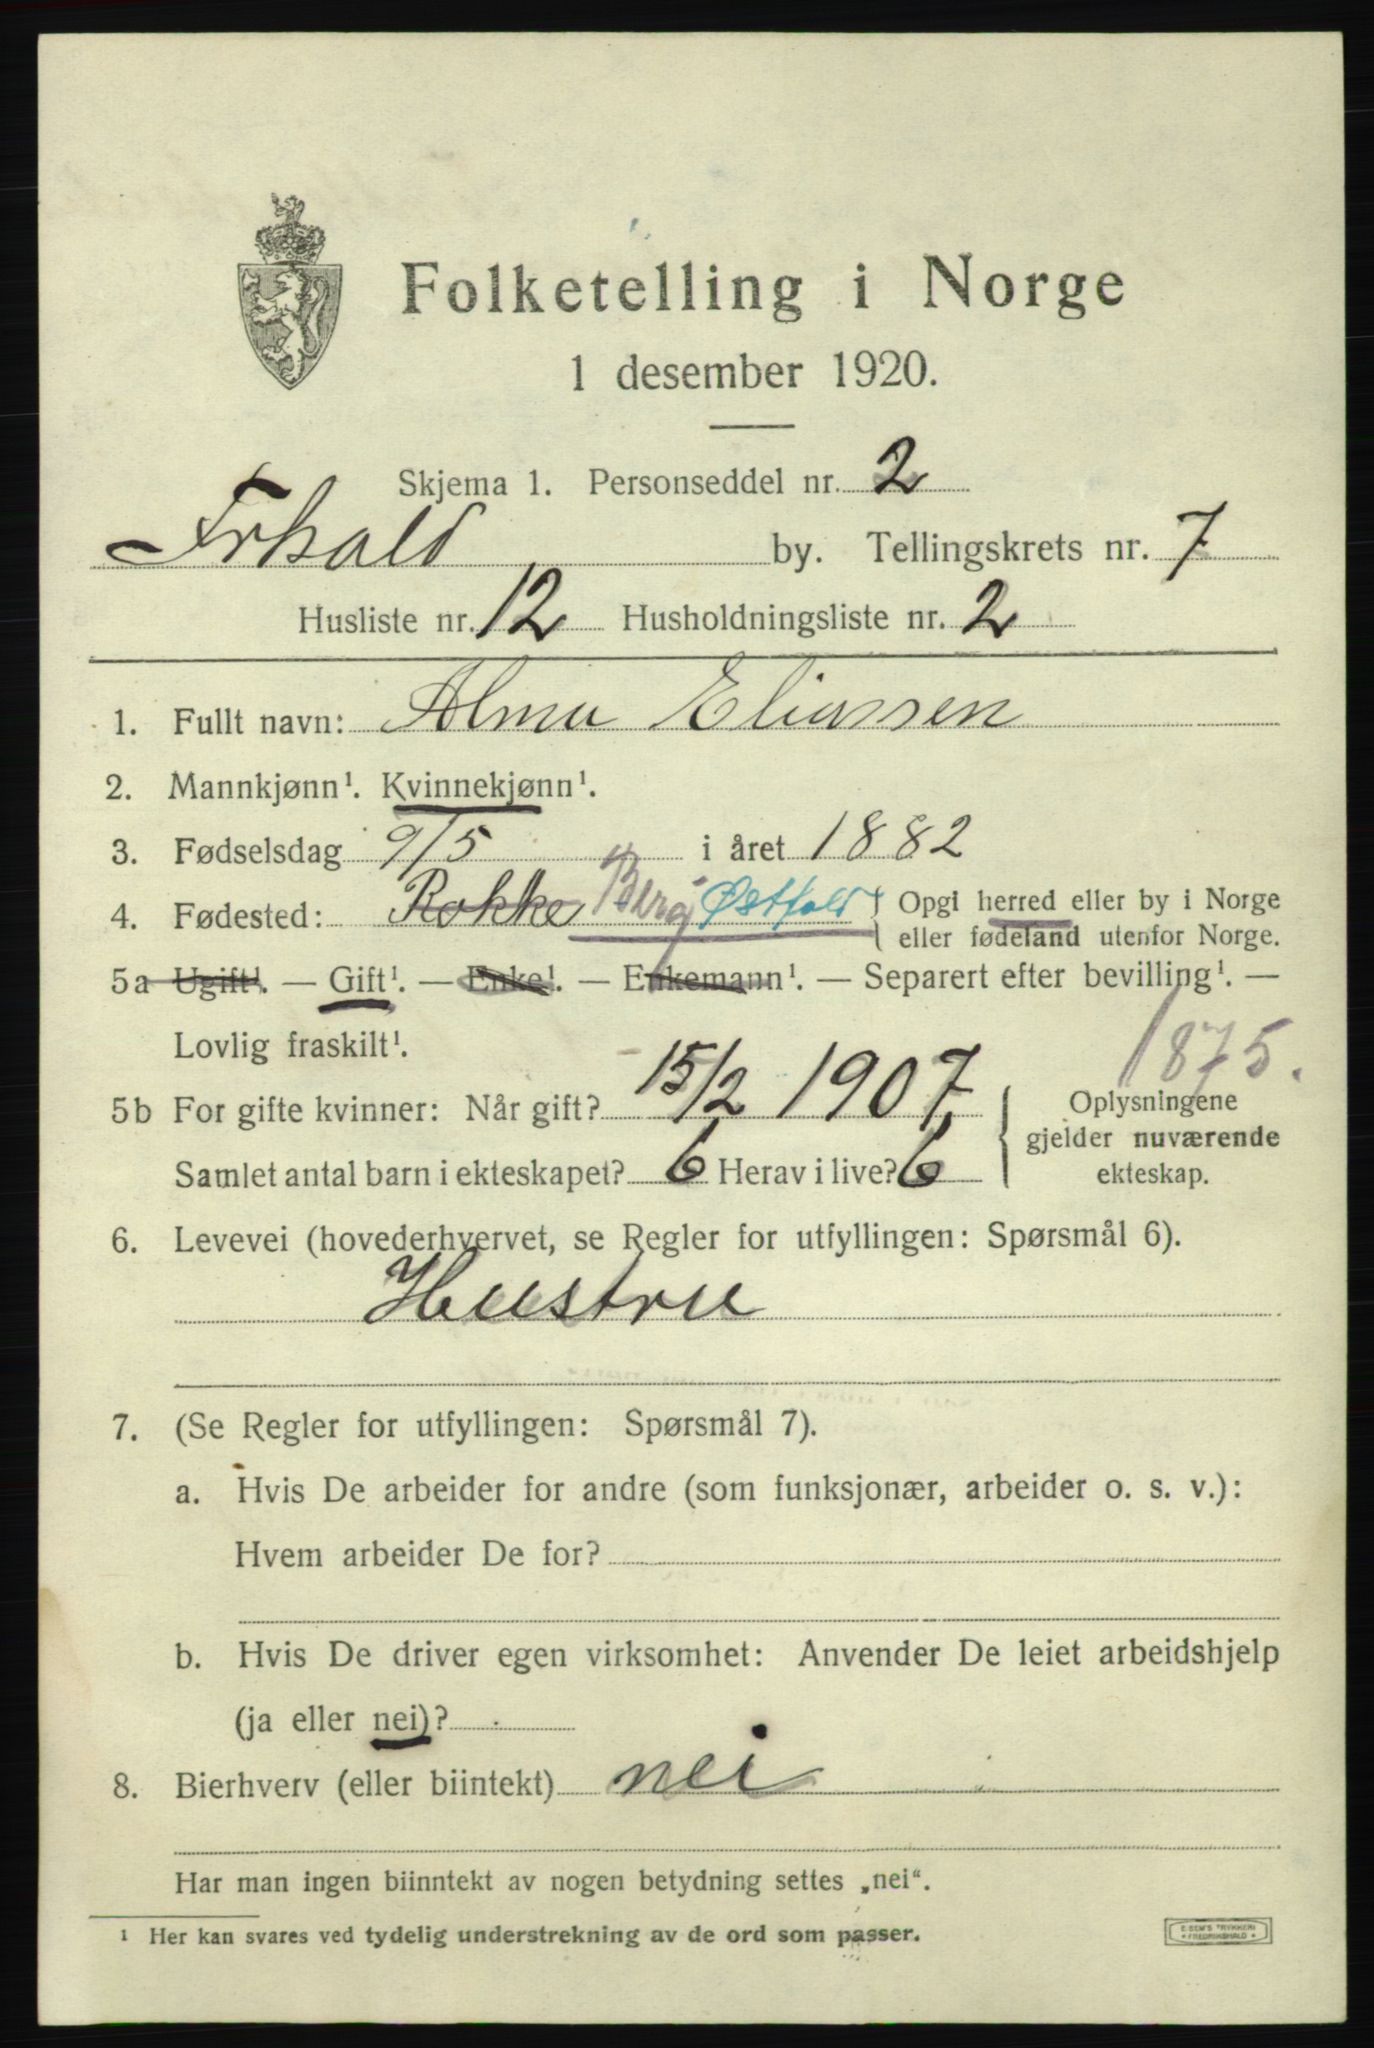 Folketelling i Norge
1 desember 1920.
Skjema 1. Personseddel nr. 2
Frhald by. Tellingskrets nr. 7
Husliste nr. 12 Husholdningsliste nr. 2
1. Fullt navn: Alma Eliassen
2. Mannkjønn¹. Kvinnekjønn¹.
3. Fødselsdag 9/5 i året 1882
4. Fødested: Rokke Berg Østfold } Opgi herred eller by i Norge
eller fødeland utenfor Norge.
5a Ugift¹. — Gift¹. — Enke¹. — Enkemann¹. — Separert efter bevilling¹. —
Lovlig fraskilt¹.
1875.
5b For gifte kvinner: Når gift? 15/2 1907
Samlet antal barn i ekteskapet? 6 Herav i live? 6
Oplysningene
gjelder nuværende
ekteskap.
6. Levevei (hovederhvervet, se Regler for utfyllingen: Spørsmål 6).
Hustru
7. (Se Regler for utfyllingen: Spørsmål 7).
a. Hvis De arbeider for andre (som funksjonær, arbeider o. s. v.):
Hvem arbeider De for?
b. Hvis De driver egen virksomhet: Anvender De leiet arbeidshjelp
(ja eller nei)?
8. Bierhverv (eller biintekt) nei
Har man ingen biinntekt av nogen betydning settes „nei“.
¹ Her kan svares ved tydelig understrekning av de ord som passer.
E. SEM'S TRYKKERI
FREDRIKSHALD